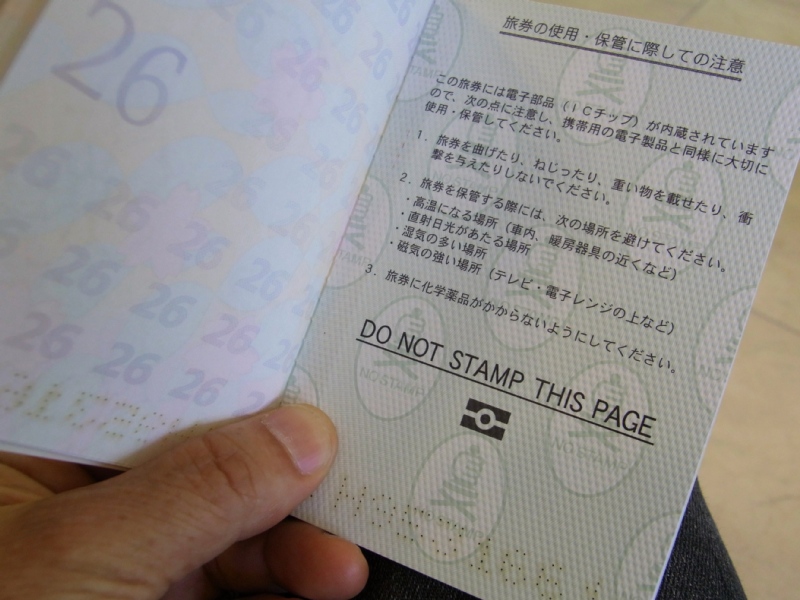 26
旅券の使用・保管に際しての注意
この旅券には電子部品（ＩＣチップ）が内蔵されています
ので、次の点に注意し、携帯用の電子製品と同様に大切に
使用・保管してください。
1．旅券を曲げたり、ねじったり、重い物を載せたり、衝
撃を与えたりしないでください。
2．旅券を保管する際には、次の場所を避けてください。
・高温になる場所（車内、暖房器具の近くなど）
・直射日光があたる場所
・湿気の多い場所
・磁気の強い場所（テレビ・電子レンジの上など）
3．旅券に化学薬品がかからないようにしてください。
DO NOT STAMP THIS PAGE
NO STAMP